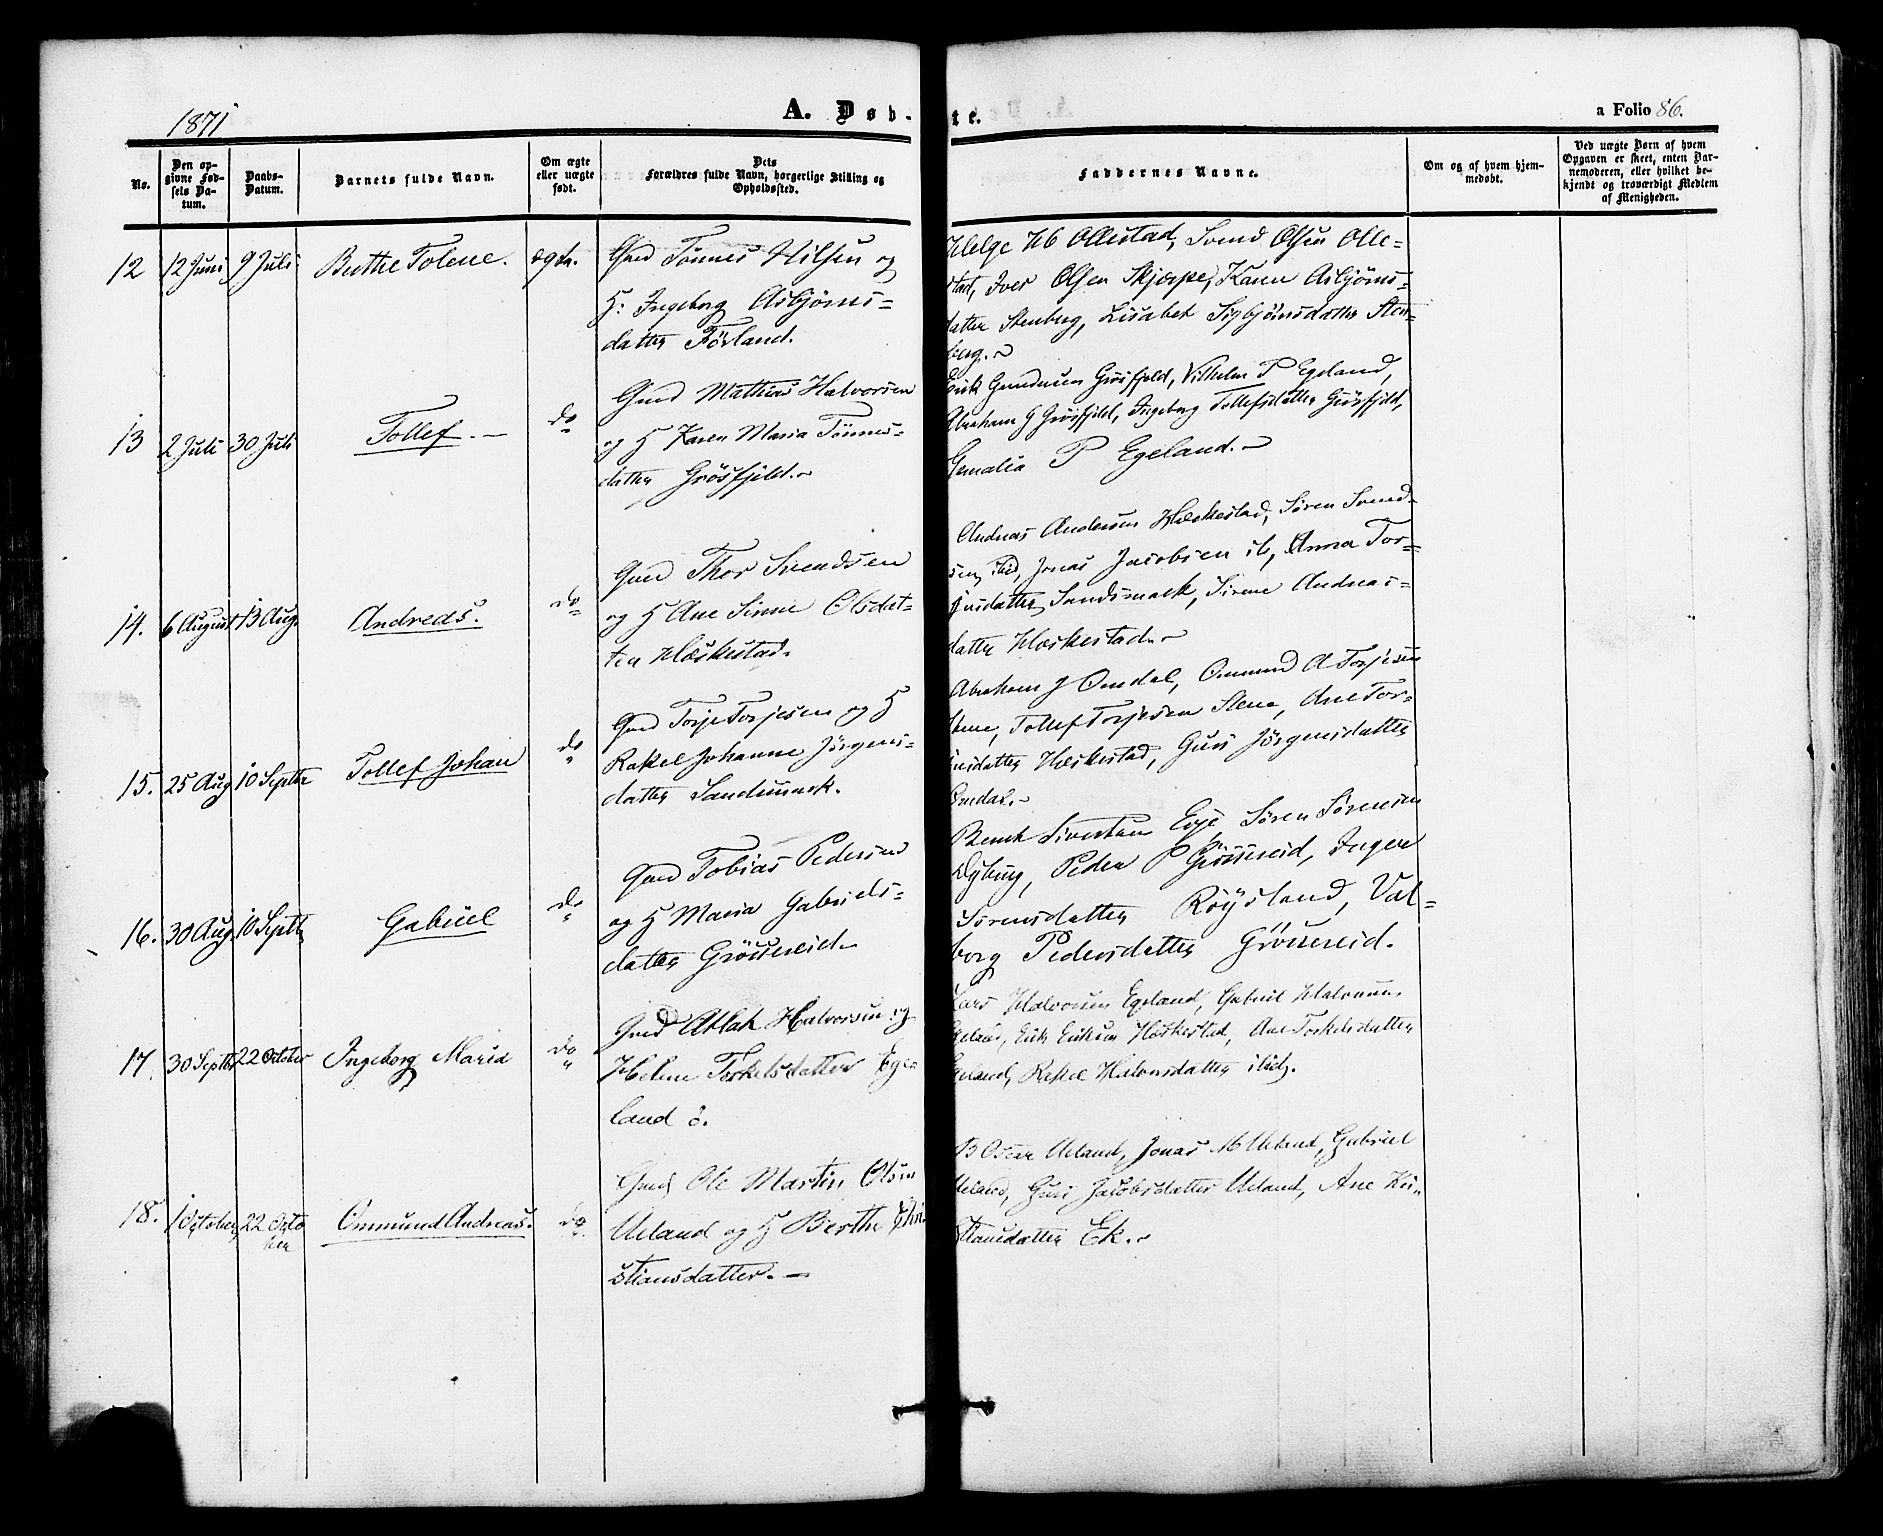 1871
A. Døbte.
a Folio 86.
No.
Den opgivne Fødsels Datum.
Daabs-Datum.
Barnets fulde Navn.
Om ægte eller uægte født.
Dets Forældres fulde Navn, borgerlige Stilling og Opholdssted.
Faddernes Navne.
Om og af hvem hjemmedøbt.
Ved uægte Børn af hvem Opgaven er skeet, enten Barnemoderen, eller hvilket bekjendt og troværdigt Medlem af Menigheden.
12
12 Juni
9 Juli
Berthe Tolene.
ægte.
Gmd Tønnes Nilsen og
H: Ingeborg Asbjørns-
datter Førland.
Helge Hb Ollestad, Svend Olsen Olle-
stad, Iver Olsen Skjerpe, Karen Asbjørns-
datter Stenberg, Lisabet Sigbjørnsdatter Sten-
berg.
13
2 Juli
30 Juli
Tollef.
do
Gmd Mathias Halvorsen
og H Karen Maria Tønnes-
datter Grøsfjeld.
Erik Gundersen Grøsfjeld, Vilhelm P Egeland,
Abraham G Grøsfjeld, Ingeborg Tollefsdatter Grøsfjeld,
P Egeland.
14.
6 August
13 Aug.
Andreas.
do
Gmd Thor Svendsen
og H Ane Sirine Olsdat-
ter Hæskestad.
Andreas Andersen Hæskestad, Søren Svend-
sen, ibid, Jonas Jacobsen ib, Anna Tor-
jusdatter Sandsmark, Sirene Andreas-
datter Hæskestad.
15.
25 Aug
10 Septbr
Tollef Johan
do
Gmd Torje Torjesen og H
Rakel Johanne Jørgens-
datter Sandsmark.
Abraham J Omdal, Ommund A Torjesen
Stene, Tollef Torjesen Stene, Ane Tor-
jusdatter Hæskestad, Guri Jørgensdatter
Omdal.
16.
30 Aug.
10 Septb
Gabriel
do
Gmd Tobias Pedersen
og H Maria Gabriels-
datter Grøssereid.
Bernt Sivertsen Eeje Søren Sørensen
Dyburg, Peder P Grøssereid, Inger
Sørensdatter Røysland, Val-
borg Pedersdatter Grøssereid.
17.
30 Septbr
22 October
Ingeborg Maria
do
Gmd Atlak Halvorsen og
Helene Torkelsdatter Ege-
land ö.
Lars Halvorsen Egeland, Gabriel Halvorsen
Egeland, Erik Eriksen Hæskestad, Ane Torkelsdatter
Egeland, Rakel Halvorsdatter ibid.
18.
1 October
22 Octo
ber
Ommund Andreas.
do.
Gmd Ole Martin Olsen
Ueland og H Berthe Chri-
stiansdatter.
B Oscar Ueland, Jonas M Ueland, Gabriel
Ueland, Guri Jacobsdatter Ueland, Ane Kri-
stiansdatter Ek.